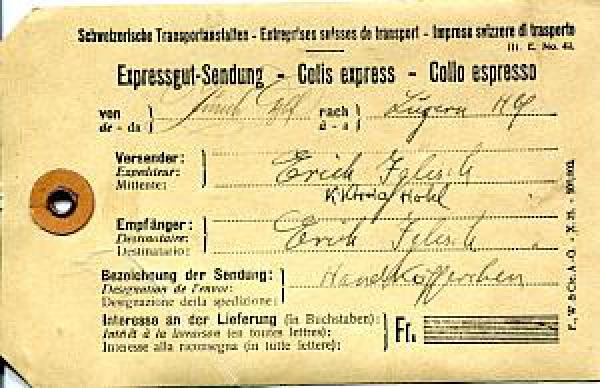 Schweizerische Transportanstalten - Entreprises suisses de transport - Impresa svizzere di trasporto
III. E. No. 43.
Expressgut-Sendung - Colis express - Collo espresso
von nach Luzern
de - da à - a
Versender: Erich
Expéditeur:
Mittente: Hotel
Empfänger: Erich
Destinataire:
Destinatario:
Bezeichnung der Sendung: Handköfferchen
Désignation de l'envoi:
Designazione della spedizione:
Interesse an der Lieferung (in Buchstaben): Fr.
Intérêt à la livraison (en toutes lettres):
Interesse alla riconsegna (in tutte lettere):